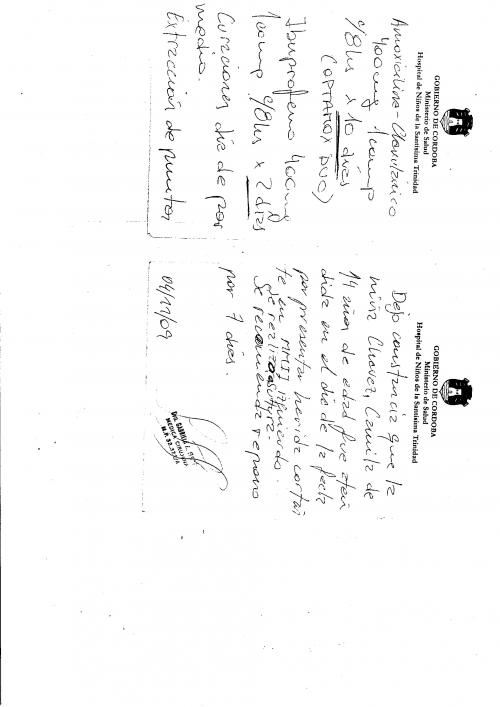 GOBIERNO DE CORDOBA
Ministerio de Salud
Hospital de Niños de la Santísima Trinidad
Amoxicilina - Clavulánico
400mg 1 comp
c/8hs x 10 días
(OPTAMOX DUO)
Ibuprofeno 400mg
1 comp c/8hs x 2 días
Curaciones día de por
medio.
Extracción de puntos
GOBIERNO DE CORDOBA
Ministerio de Salud
Hospital de Niños de la Santísima Trinidad
Dejo constancia que la
niña Chavez, Camila de
14 años de edad fue aten
dida en el día de la fecha
por presentar herida cortan
te en MMII izquierdo.
Se realizó sutura.
Se recomienda reposo
por 7 días.
04/11/09
MEDICA CIRUJANA